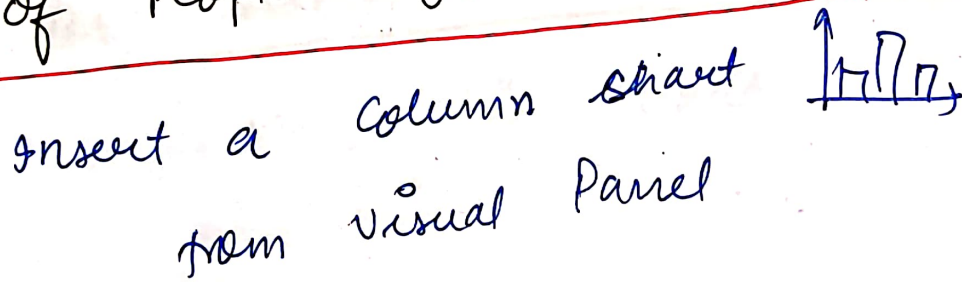 of
Insert a Column chart
from visual Panel